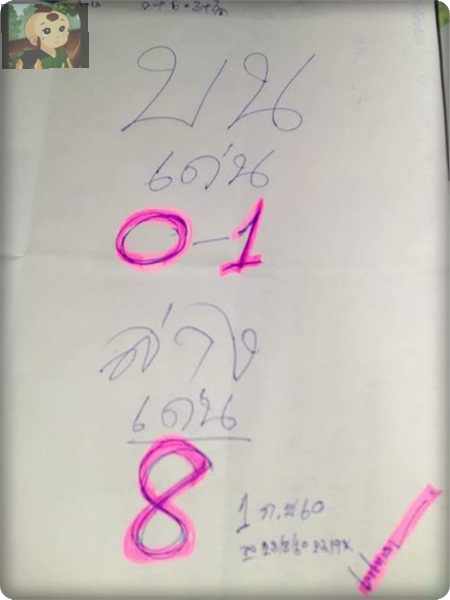 บน
เด่น
0-1
ล่าง
เด่น
8
1 ก.ย 60